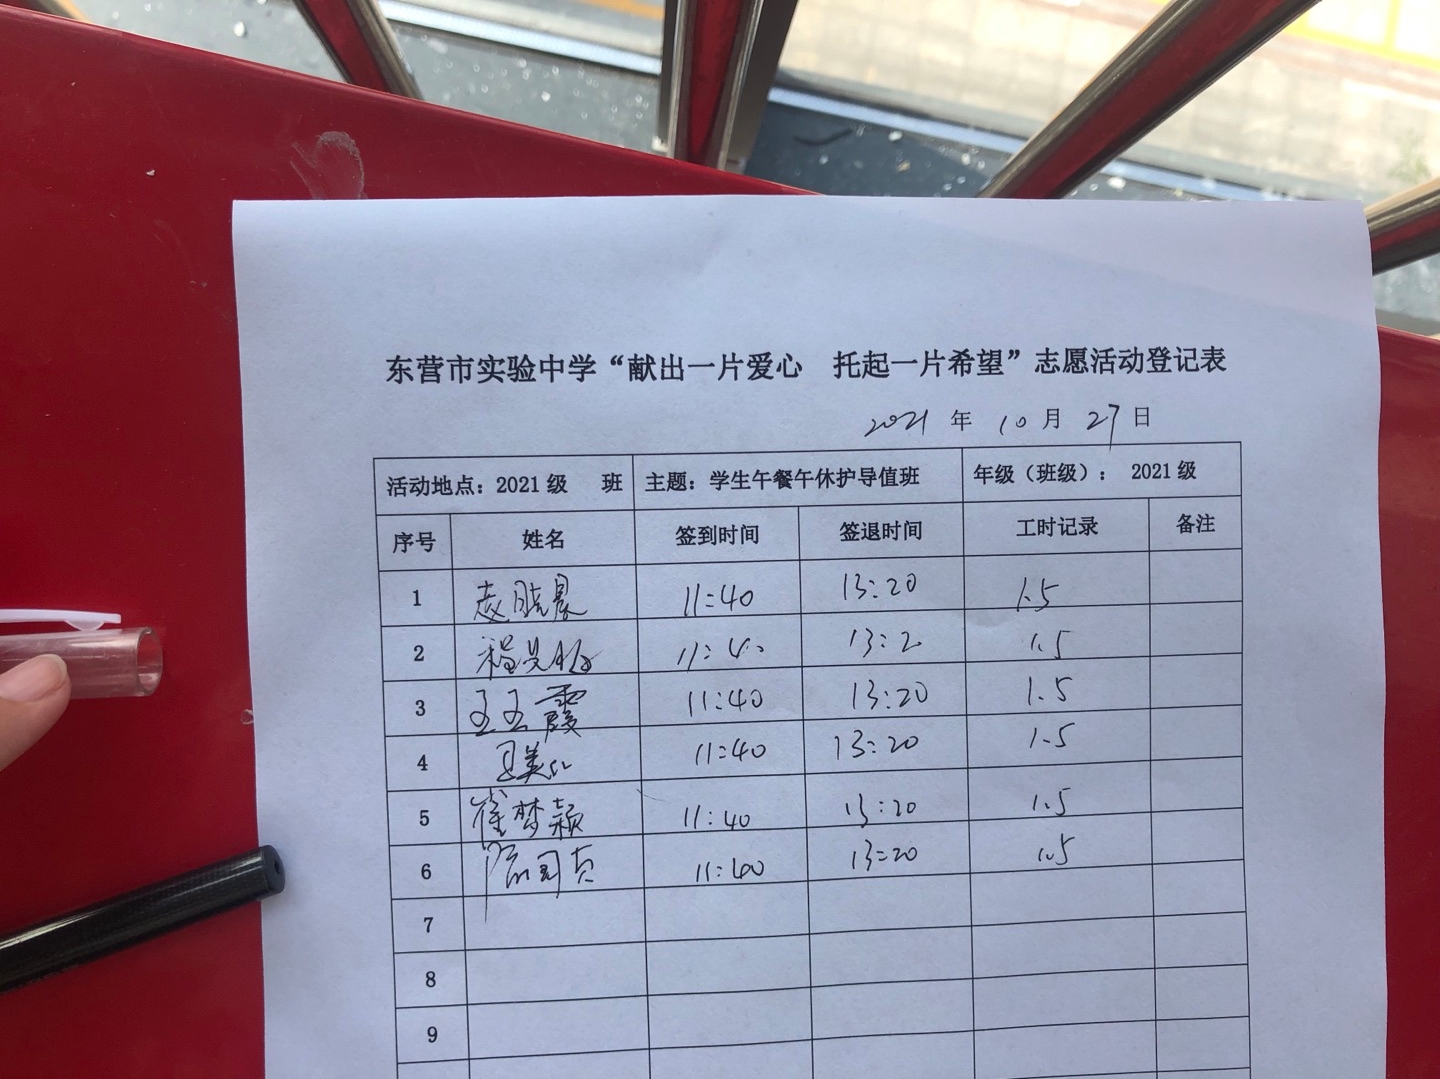 东营市实验中学“献出一片爱心 托起一片希望”志愿活动登记表
2021 年 10 月 27 日
活动地点：2021 级 班 主题：学生午餐午休护导值班 年级（班级）： 2021 级
序号 姓名 签到时间 签退时间 工时记录 备注
1 11:40 13:20 1.5
2 11:40 13:2 1.5
3 王玉霞 11:40 13:20 1.5
4 11:40 13:20 1.5
5 崔梦颖 11:40 13:20 1.5
6 11:40 13:20 1.5
7
8
9